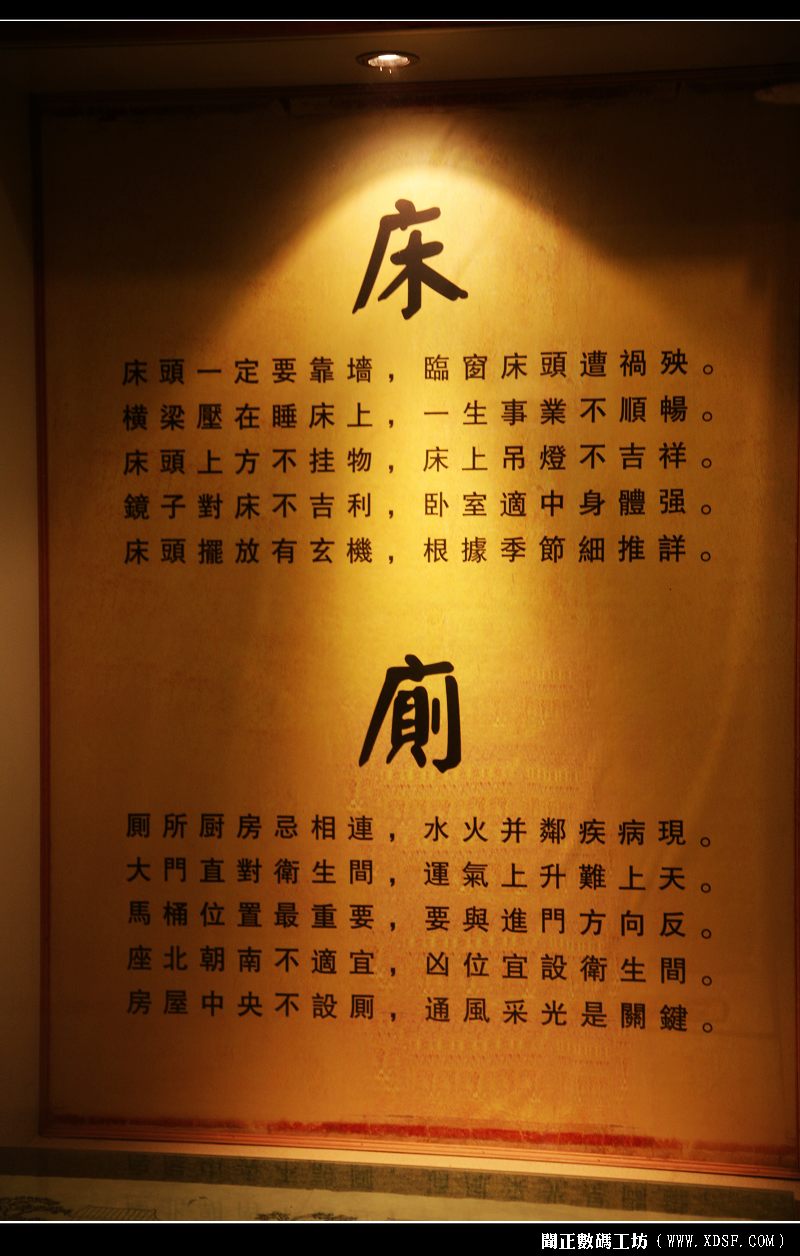 床
床頭一定要靠墻，臨窗床頭遭禍殃。
橫梁壓在睡床上，一生事業不順暢。
床頭上方不挂物，床上吊燈不吉祥。
鏡子對床不吉利，卧室適中身體强。
床頭擺放有玄機，根據季節細推詳。
廁
厠所厨房忌相連，水火并鄰疾病現。
大門直對衛生間，運氣上升難上天。
馬桶位置最重要，要與進門方向反。
座北朝南不適宜，凶位宜設衛生間。
房屋中央不設厠，通風采光是關鍵。
聞正數碼工坊（WWW.XDSF.COM）